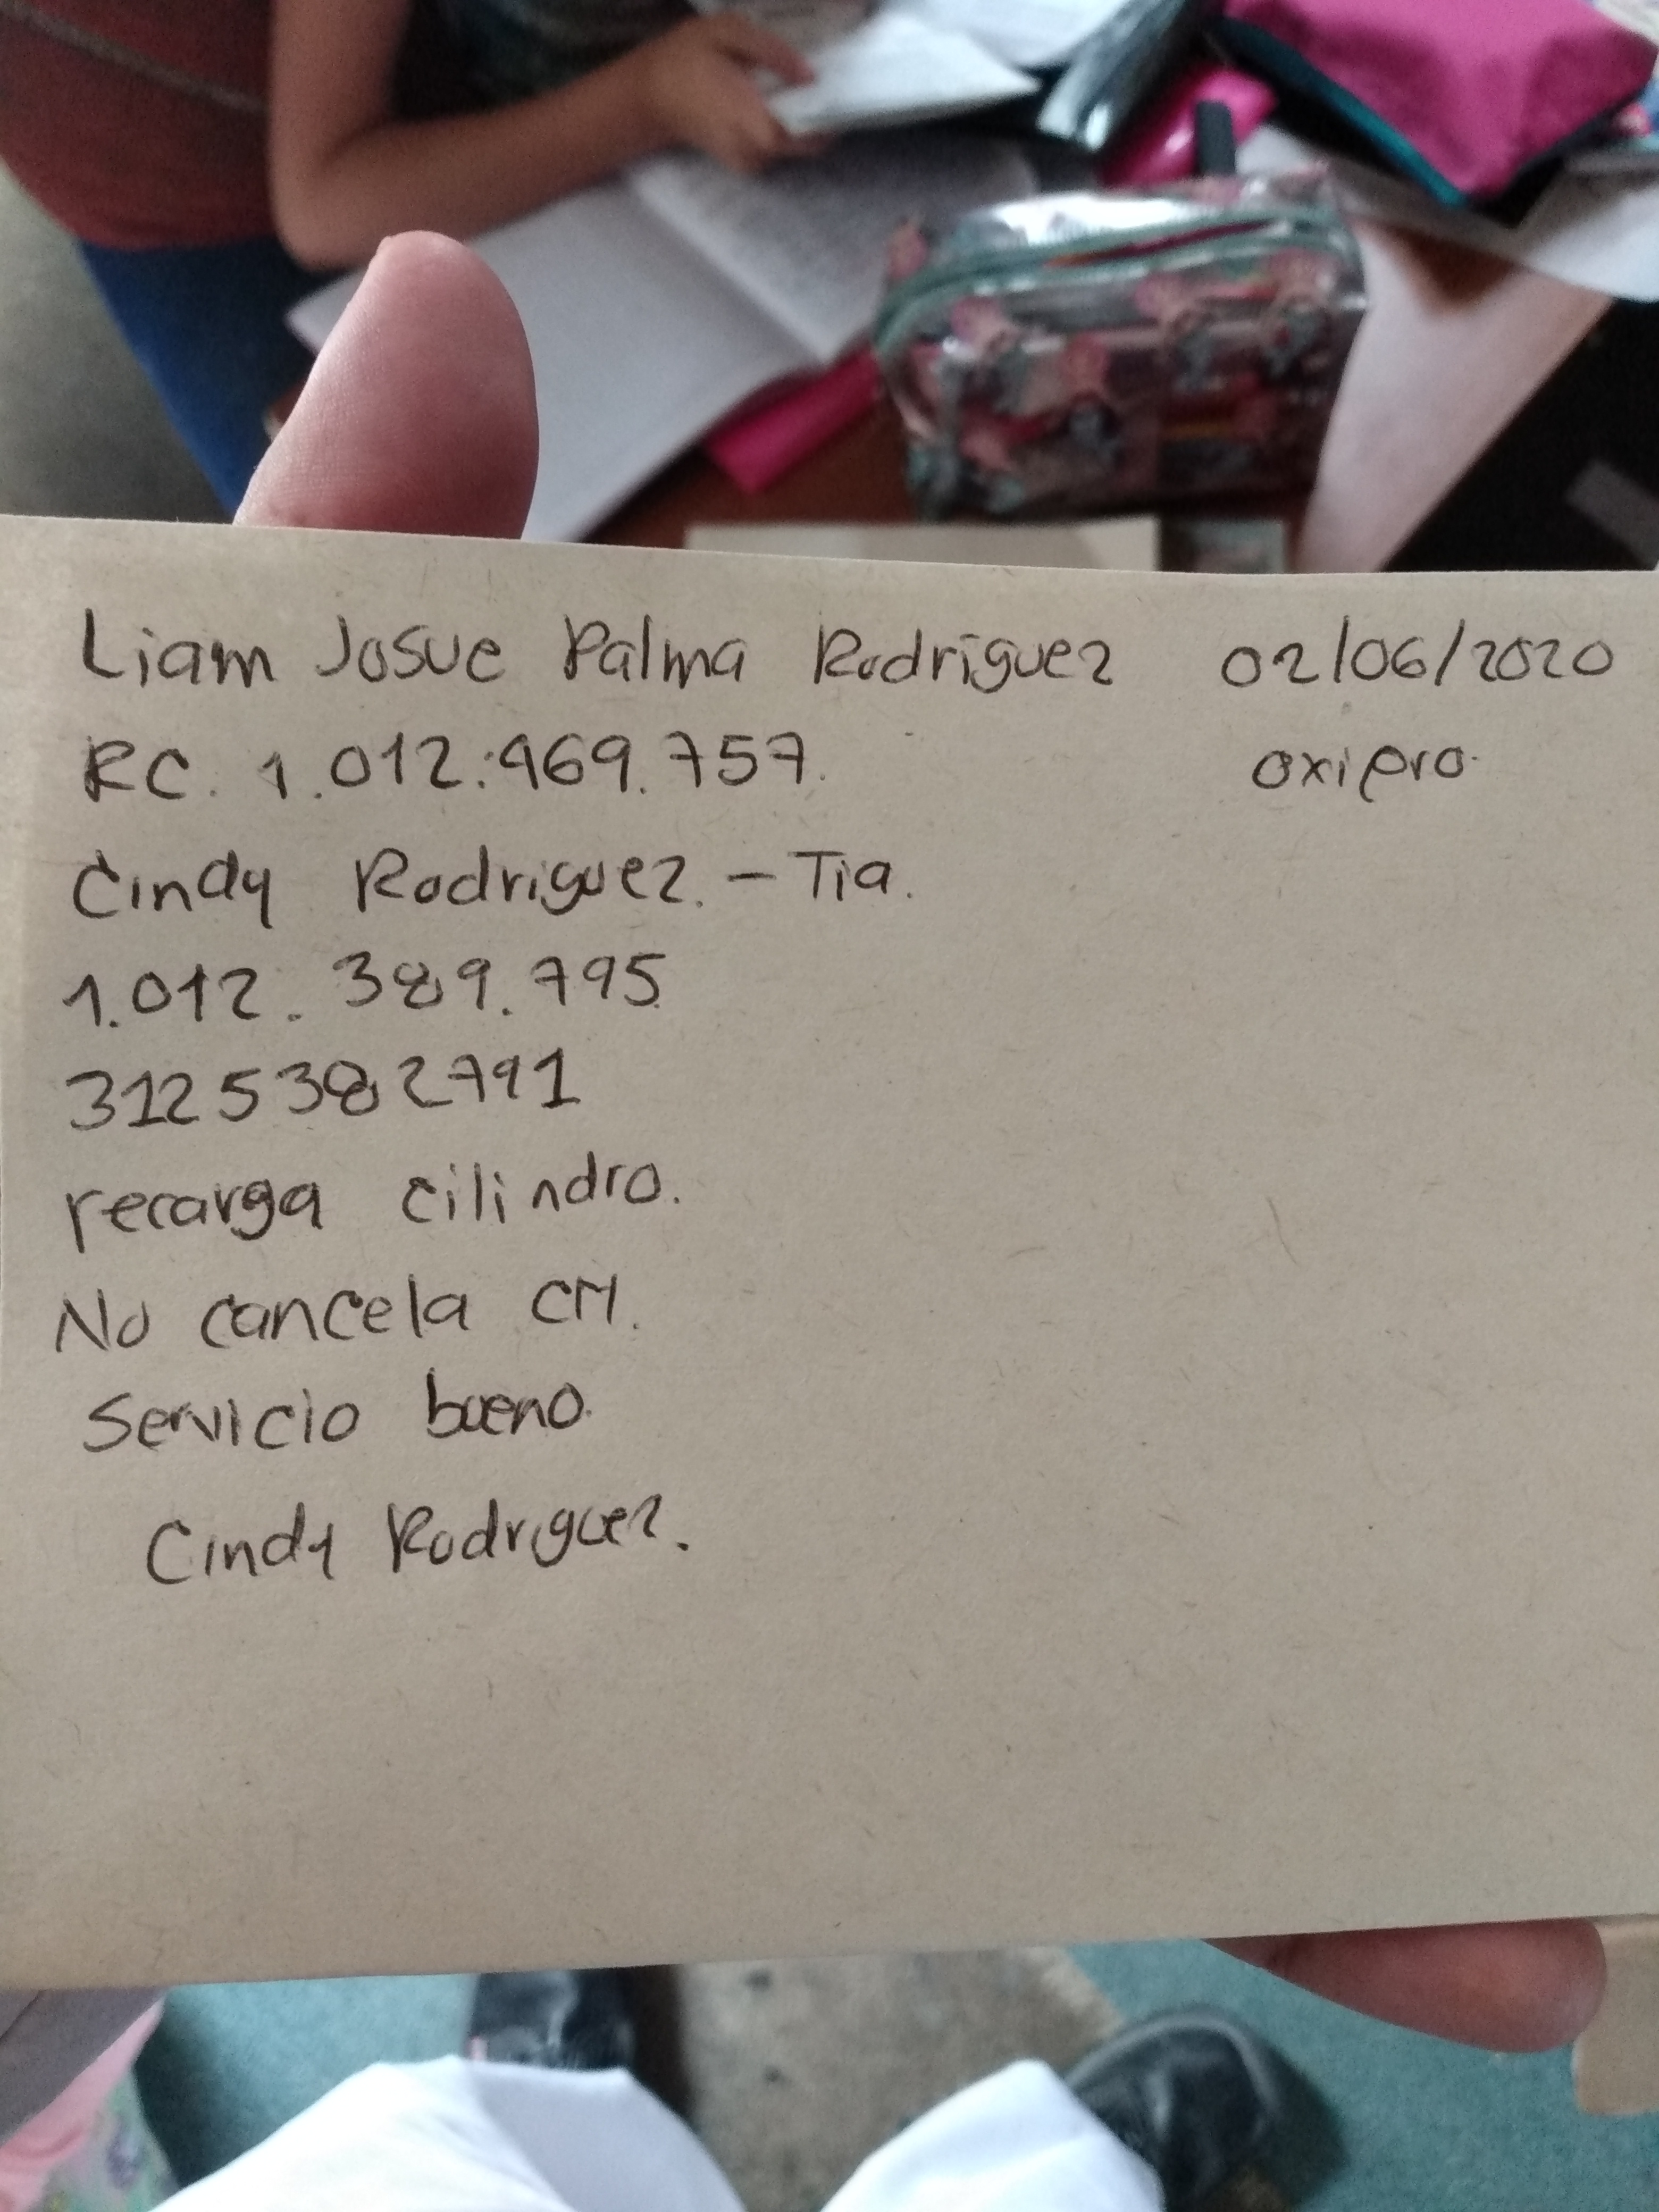 Liam Josue Palma Rodriguez 02/06/2020
RC. 1.012.969.757. oxipro.
Cindy Rodriguez. - Tia.
1.012. 389.795
3125382791
recarga cilindro.
No cancela CM.
Servicio bueno.
Cindy Rodriguez.